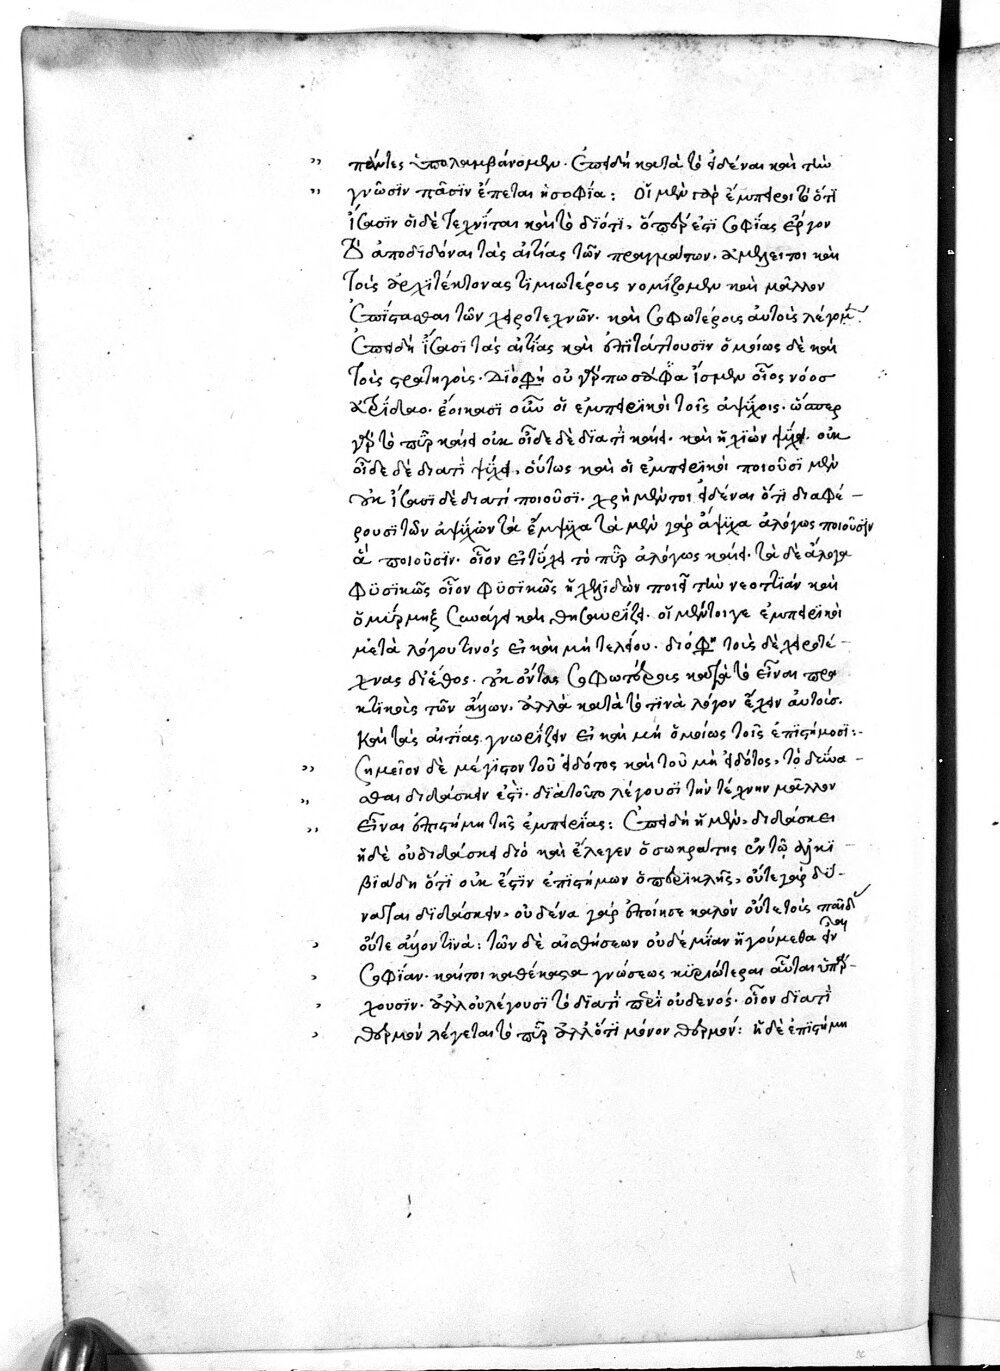 πάντες ὑπολαμβάνομεν. ἐπειδὴ κατὰ τὸ εἰδέναι καὶ τὴν
γνῶσϊν πᾶσϊν ἕπεται ἡ σοφΐα: Οἱ μὲν γὰρ ἔμπειροι τὸ ὅτϊ
ἴσασϊν οἱ δὲ τεχνῖται καὶ τὸ διότι, ὅπερ ἐστϊ σοφΐας ἔργον
τὸ ἀποδιδόναι τὰς αἰτίας τῶν πραγμάτων. ἀμέλει τοι καὶ
τοὺς ἀρχιτέκτονας τϊμιωτέροις νομΐζομεν καὶ μᾶλλον
ἐπΐστασθαι τῶν χειροτεχνῶν. καὶ σοφωτέροις αὐτοὺς λέγομ.
ἐπειδὴ ἴσασι τὰς αἰτΐας καὶ ἐπϊτάττουσϊν ὁμοίως δὲ καὶ
τοῖς στρατηγοῖς. Διὸ φη οὐ γάρ πω σάφα ἴσμεν οἷος νόοσ
ἀτρείδαο. ἐοίκασϊ οὖν οἱ ἐμπειρϊκοὶ τοῖς ἀψύχοις. ὥσπερ
γὰρ τὸ πῦρ καίει οὐκ οἶδε δὲ διατὶ καίει. καὶ ἡ χϊὼν ψύχει. οὐκ
οἶδε δὲ διατὶ ψύχει, οὕτως καὶ οἱ ἐμπειρϊκοὶ ποιοῦσϊ μὲν
οὐκ ἴσασϊ δὲ διατί ποιοῦσϊ. χρὴ μέντοι εἰδέναι ὅτϊ διαφέ-
ρουσϊ τῶν ἀψύχων τὰ ἔμψυχα τὰ μὲν γὰρ ἄψυχα ἀλόγως ποιοῦσϊν
ἃ ποιοῦσϊν. οἷον εἰ τύχει τὸ πῦρ ἀλόγως καίει. τὰ δὲ ἄλογα
φϋσϊκῶς οἷον φϋσϊκῶς ἡ χελϊδὼν ποιεῖ τὴν νεοττϊὰν καὶ
ὁ μύρμηξ συνάγει καὶ θησαυρΐζει. οἱ μέντοιγε ἐμπειρϊκοὶ
μετὰ λόγου τινὸς εἰ καὶ μὴ τελείου. διό φη τοὺς δὲ χειροτέ-
χνας δι ἔθος. οὐκ ὄντας σοφωτέροις κατὰ τὸ εἶναι πρα
κτικοὺς τῶν ἄλλων. ἀλλὰ κατὰ τὸ τινὰ λόγον ἔχειν αὐτοὺς.
καὶ τὰς αἰτΐας γνωρΐζειν εἰ καὶ μὴ ὁμοίως τοῖς ἐπϊστήμοσϊ:-
Σημεῖον δὲ μέγϊστον τοῦ εἰδότος καὶ τοῦ μὴ εἰδότος, τὸ δύνα-
σθαι διδάσκειν ἐστϊ. διὰ τοῦτο λέγουσϊ τὴν τέχνην μᾶλλον
εἶναι ἐπιστήμη τῆς ἐμπειρίας: ἐπειδὴ ἡ μὲν, διδάσκει
ἡ δὲ οὐ διδάσκει διὸ καὶ ἔλεγεν ὁ σωκράτης ἐν τῷ ἀλκϊ
βϊάδη ὅτϊ οὐκ ἔστϊν ἐπϊστήμων ὁ περϊκλῆς, οὔτε γὰρ δύ-
ναται δϊδάσκειν, οὐδένα γὰρ ἐποίησε καλὸν οὔτε τοὺς παῖδ
οὔτε ἄλλον τϊνὰ: τῶν δὲ αἰσθήσεων οὐδὲ μΐαν ἡγούμεθα εἶναι
σοφΐαν. καίτοι καθέκαστα γνώσεως κϋριώτεραι αὗται ὑπάρ-
χουσϊν. ἀλλ οὐ λέγουσϊ τὸ διατὶ περὶ οὐδενὸς. οἷον δϊατὶ
θερμὸν λέγεται τὸ πῦρ ἀλλ ὅτϊ μόνον θερμόν: ἡ δὲ ἐπϊστήμη